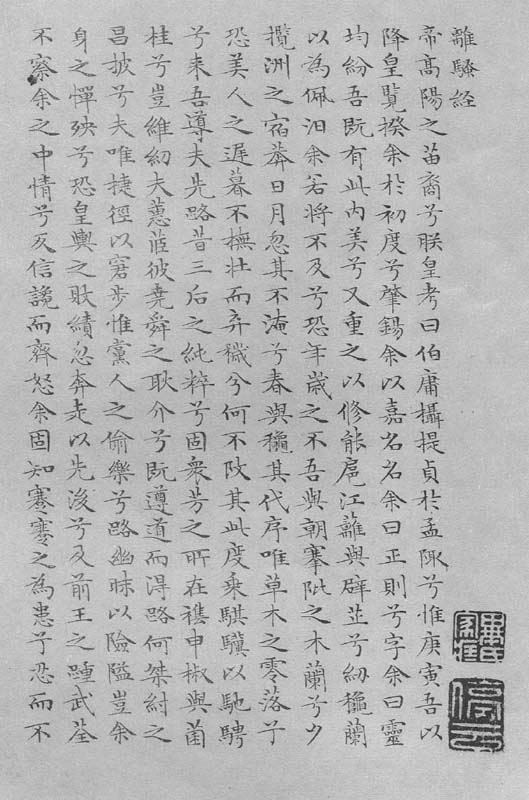 離騷経
帝髙陽之苗裔兮朕皇考曰伯庸攝提貞於孟陬兮惟庚寅吾以
降皇覽揆余於初度兮肇錫余以嘉名名余曰正則兮字余曰靈
均紛吾既有此内美兮又重之以修能扈江蘺與辟芷兮紉穐蘭
以為佩汨余若將不及兮恐年歳之不吾與朝搴阰之木蘭兮夕
攬洲之宿莽日月忽其不淹兮春與穐其代序唯草木之零落兮
恐美人之遲暮不撫壮而弃穢兮何不改其此度乗騏驥以馳騁
兮来吾導夫先路昔三后之純粹兮固衆芳之所在襍申椒與菌
桂兮豈維紉夫蕙茝彼堯舜之耿介兮既遵道而得路何桀紂之
昌披兮夫唯捷徑以窘步惟黨人之偷樂兮路幽昧以險隘豈余
身之憚殃兮恐皇輿之敗績忽奔走以先後兮及前王之踵武荃
不察余之中情兮反信讒而齊怒余固知謇謇之為患兮忍而不
停雲